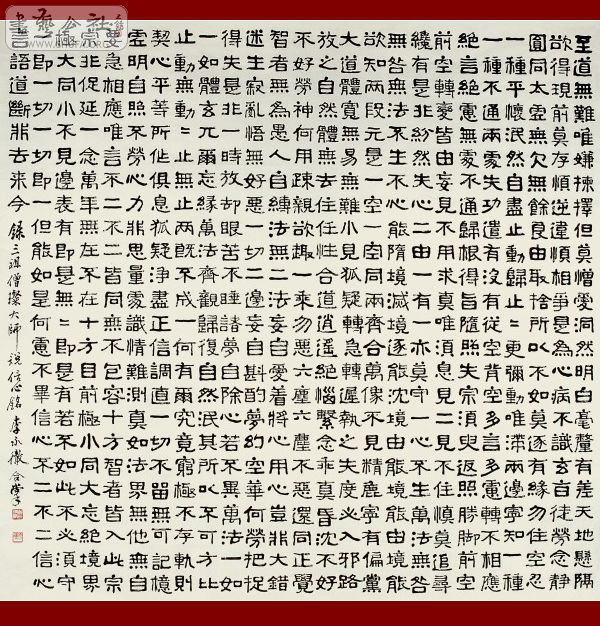 至道無難唯嫌揀擇但莫憎愛洞然明白毫釐有差天地懸隔
欲得現前莫存順逆違順相爭是為心病不識玄旨徒勞念靜
圓同太虛無欠無餘良由取捨所以不如莫逐有緣勿住空忍
一種平懷泯然自盡止動歸止〻更彌動唯滯兩邊寧知一種
一種不通兩處失功遣有沒有從空背空多言多慮轉不相應
絕言絕慮無處不通歸根得旨隨照失宗須臾返照勝脚前空
前空轉變皆由妄見不用求真唯須息見二見不住慎莫追尋
纔有是非紛然失心二由一有一亦莫守一心不生萬法無咎
無咎無法不生不心能隨境滅境逐能沈境由能境能由境能
欲知兩段元是一空一空同兩齊含萬像不見精麤寧有偏黨
大道體寬無易無難小見狐疑轉急轉遲執之失度必入邪路
放之自然體無去住任性合道逍遙絕惱繫念乖真昏沈不好
不好勞神何用疎親欲趣一乘勿惡六塵六塵不惡還同正覺
智者無為愚人自縛法無二法妄自愛着將心用心豈非大錯
迷生寂亂悟無好惡一切二邊妄自斟酌夢幻空華何勞把捉
得失是非一時放却眼若不睡諸夢自除心若不異萬法一如
一如體玄兀爾忘緣萬法齊觀歸復自然泯其所以不可方比
止動無動〻止無止兩既不成一何有爾究竟窮極不存軌則
契心平等所作俱息狐疑淨盡正信調直一切不留無可記憶
虛明自照不勞心力非思量處識情難測真如法界無他無自
要急相應唯言不二不二皆同無不包容十方智者皆入此宗
宗非促延一念萬年無在不在十方目前極小同大忘絕境界
極大同小不見邊表有即是無〻即是有若不如此不必須守
一即一切一切即一但能如是何慮不畢信心不二不二信心
言語道斷非去來今 錄三祖僧璨大師說信心銘 李永徽合掌
書藝公社